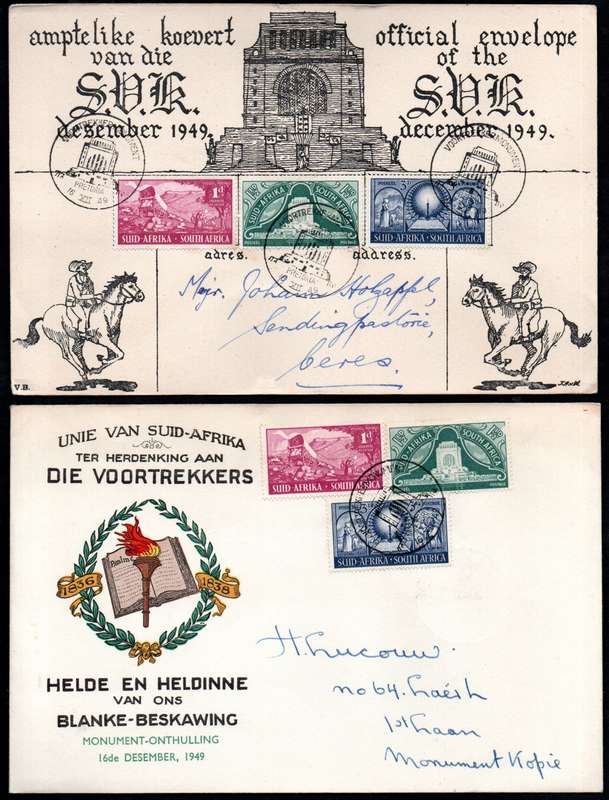 amptelike koevert
van die
S.V.K.
desember 1949.
official envelope
of the
S.V.K.
december 1949.
VOORTREKKERMONUMENT
PRETORIA
16 XII 49
VOORTREKKERMONUMENT
1D
POSSEEL POSTAGE
SUID-AFRIKA · SOUTH AFRICA
SUID-AFRIKA SOUTH AFRICA
3D
SUID-AFRIKA · SOUTH AFRICA
PRETORIA
XII 49
adres. address.
Mej. Johann Holzapfel,
Sendingpastorie,
Ceres.
V.B.
UNIE VAN SUID-AFRIKA
TER HERDENKING AAN
DIE VOORTREKKERS
Psalm
1836 1838
HELDE EN HELDINNE
VAN ONS
BLANKE-BESKAWING
MONUMENT-ONTHULLING
16de DESEMBER, 1949
1D
SUID-AFRIKA · SOUTH AFRICA
SUID-AFRIKA SOUTH AFRICA
SUID-AFRIKA · SOUTH AFRICA
no 64. Laër
1st Laan
Monument Kopie